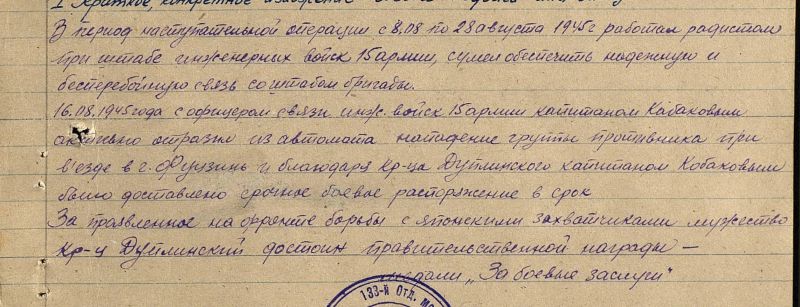 I Краткое, конкретное изложение
В период наступательной операции с 8.08 по 28 августа 1945г работал радистом
при штабе инженерных войск 15 армии, сумел обеспечить надежную и
бесперебойную связь со штабом бригады.
16.08.1945 года с офицером связи инж. войск 15 армии капитаном Кабаковым
активно отразил из автомата нападение группы противника при
в'езде в г. Фунзинь и благодаря кр-ца Дутлинского капитаном Кобаковым
было доставлено срочное боевое распоряжение в срок
За проявленное на фронте борьбы с японскими захватчиками мужество
кр-ц Дутлинский достоин правительственной награды —
медали „За боевые заслуги"
133-й Отд. мо